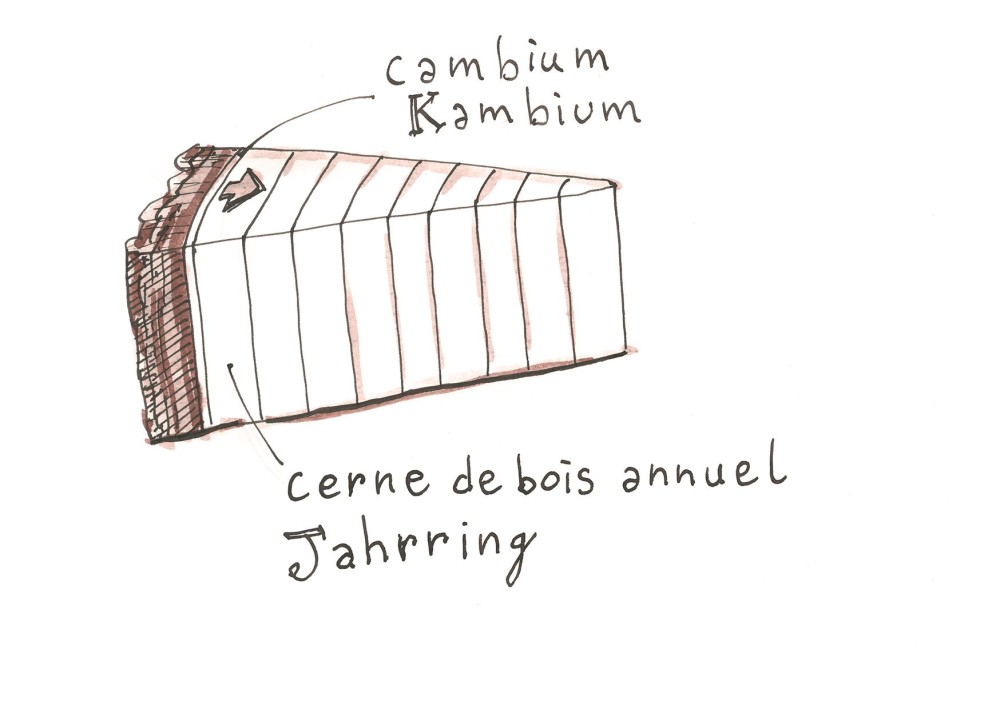 cambium
Kambium
cerne de bois annuel
Jahrring